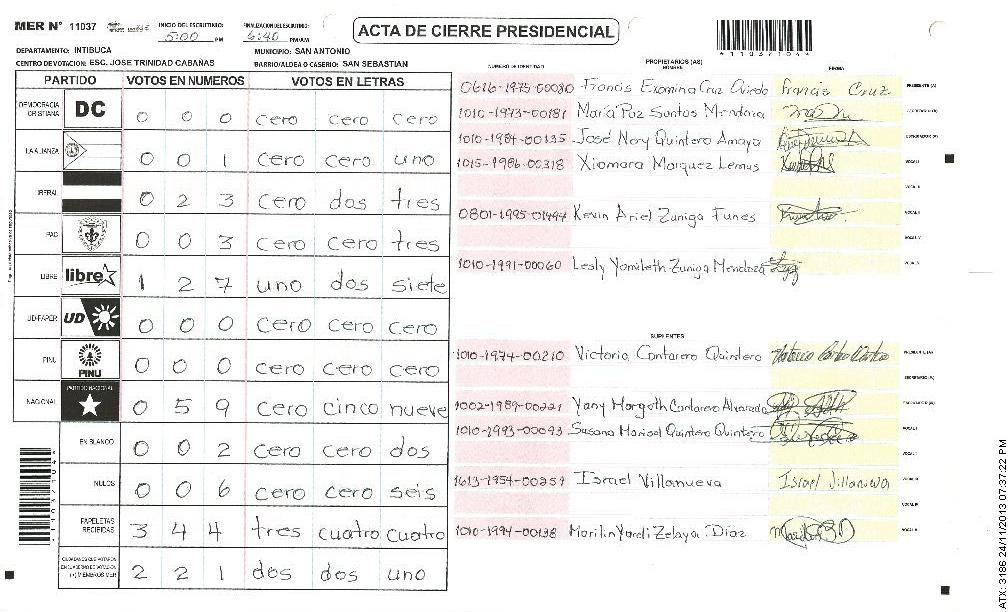 MER N° 11037 INICIO DEL ESCRUTINIO: 5:00 PM FINALIZACION DEL ESCRUTINIO: 6:40 PM/AM
ACTA DE CIERRE PRESIDENCIAL
11037104
DEPARTAMENTO: INTIBUCA MUNICIPIO: SAN ANTONIO
CENTRO DE VOTACION: ESC. JOSE TRINIDAD CABAÑAS BARRIO/ALDEA O CASERIO: SAN SEBASTIAN
PARTIDO VOTOS EN NUMEROS VOTOS EN LETRAS
DEMOCRACIA CRISTIANA DC 0 0 0 cero cero cero
LA ALIANZA 0 0 1 cero cero uno
LIBERAL 0 2 3 cero dos tres
PAC 0 0 3 cero cero tres
LIBRE libre 1 2 7 uno dos siete
UD-FAPER UD 0 0 0 cero cero cero
PINU PINU 0 0 0 cero cero cero
NACIONAL PARTIDO NACIONAL 0 5 9 cero cinco nueve
EN BLANCO 0 0 2 cero cero dos
NULOS 0 0 6 cero cero seis
PAPELETAS RECIBIDAS 3 4 4 tres cuatro cuatro
CIUDADANOS QUE VOTARON EN CUADERNO DE VOTACION (+) MIEMBROS MER 2 2 1 dos dos uno
11037104
PROPIETARIOS (AS)
NUMERO DE IDENTIDAD NOMBRE FIRMA
0616-1975-00080 Francis Exomina Cruz Oviedo Francis Cruz PRESIDENTE (A)
1010-1973-00181 María Paz Santos Mendoza SECRETARIO (A)
1010-1984-00135 José Nery Quintero Amaya ESCRUTADOR (A)
1015-1986-00318 Xiomara Marquez Lemus VOCAL I
VOCAL II
0801-1995-01494 Kevin Ariel Zuniga Funes VOCAL III
VOCAL IV
1010-1991-00060 Lesly Yamileth Zuniga Mendoza VOCAL V
SUPLENTES
1010-1974-00210 Victoria Cantarero Quintero PRESIDENTE (A)
SECRETARIO (A)
1002-1989-00221 Yany Margoth Cantarero Alvarado ESCRUTADOR (A)
1010-1993-00093 Susana Marisol Quintero Quintero VOCAL I
VOCAL II
1613-1954-00257 Israel Villanueva Israel Villanueva VOCAL III
VOCAL IV
1010-1994-00138 Marilin Yardi Zelaya Diaz VOCAL V
ATX: 3186 24/11/2013 07:37:22 PM